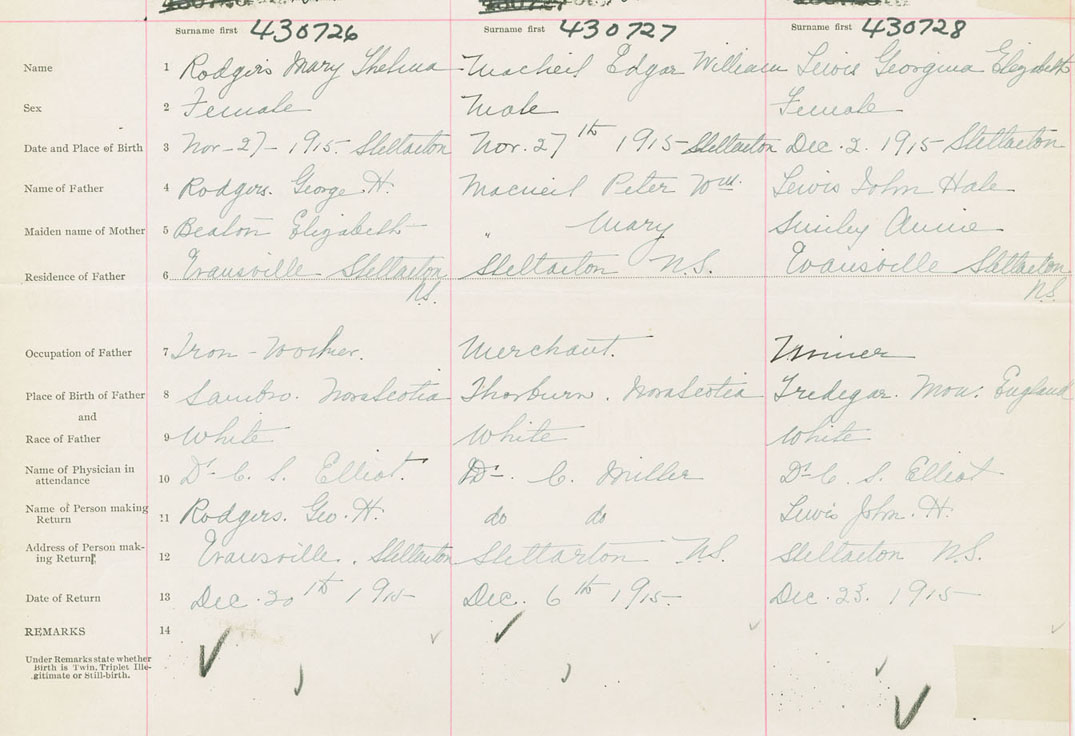 Surname first 430726 Surname first 430727 Surname first 430728
Name 1 Rodgers Mary Thelma Macneil Edgar William Lewis Georgina Elizabeth
Sex 2 Female Male Female
Date and Place of Birth 3 Nov-27-1915- Stellarton Nov. 27th 1915 Stellarton Dec. 2. 1915 Stellarton
Name of Father 4 Rodgers. George H. Macneil Peter Wm. Lewis John Hale
Maiden name of Mother 5 Beaton Elizabeth " Mary Smiley Annie
Residence of Father 6 Evansville Stellarton Stellarton N.S. Evansville Stellarton
N.S. N.S.
Occupation of Father 7 Iron-Worker. Merchant. Miner
Place of Birth of Father 8 Sambro. Nova Scotia Thorburn. Nova Scotia Tredegar. Mon. England
and
Race of Father 9 White White White
Name of Physician in
attendance 10 Dr. C. S. Elliot. Dr. C. Miller Dr. C. S. Elliot
Name of Person making
Return 11 Rodgers. Geo. H. do do Lewis John. H.
Address of Person mak-
ing Return 12 Evansville. Stellarton Stellarton N.S. Stellarton N.S.
Date of Return 13 Dec. 20th 1915 Dec. 6th 1915 Dec. 23. 1915
REMARKS 14
Under Remarks state whether
Birth is Twin, Triplet Ille-
gitimate or Still-birth.